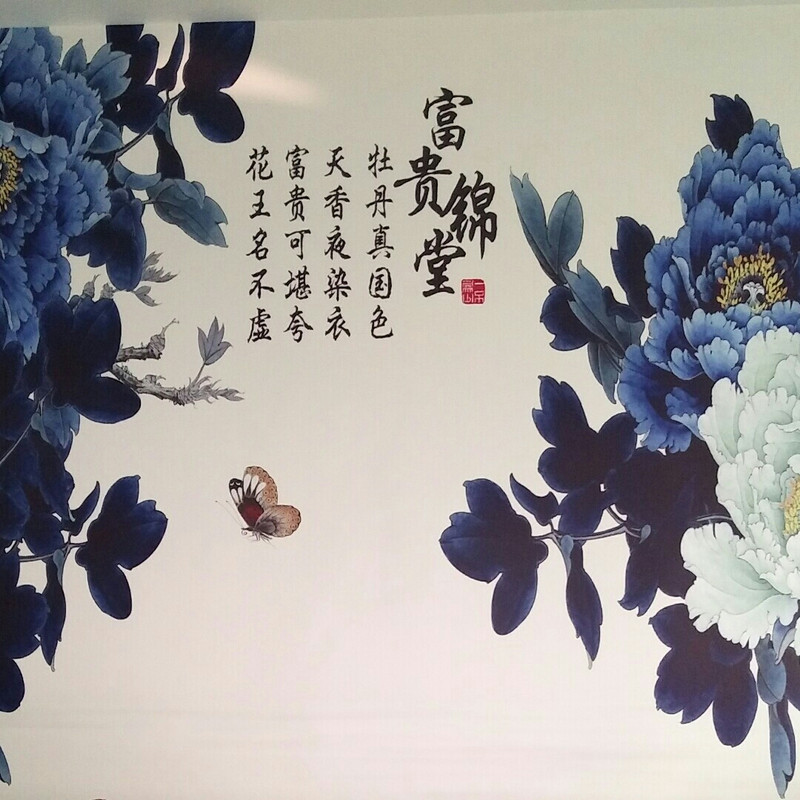 富贵锦堂
牡丹真国色
天香夜染衣
富贵可堪夸
花王名不虚